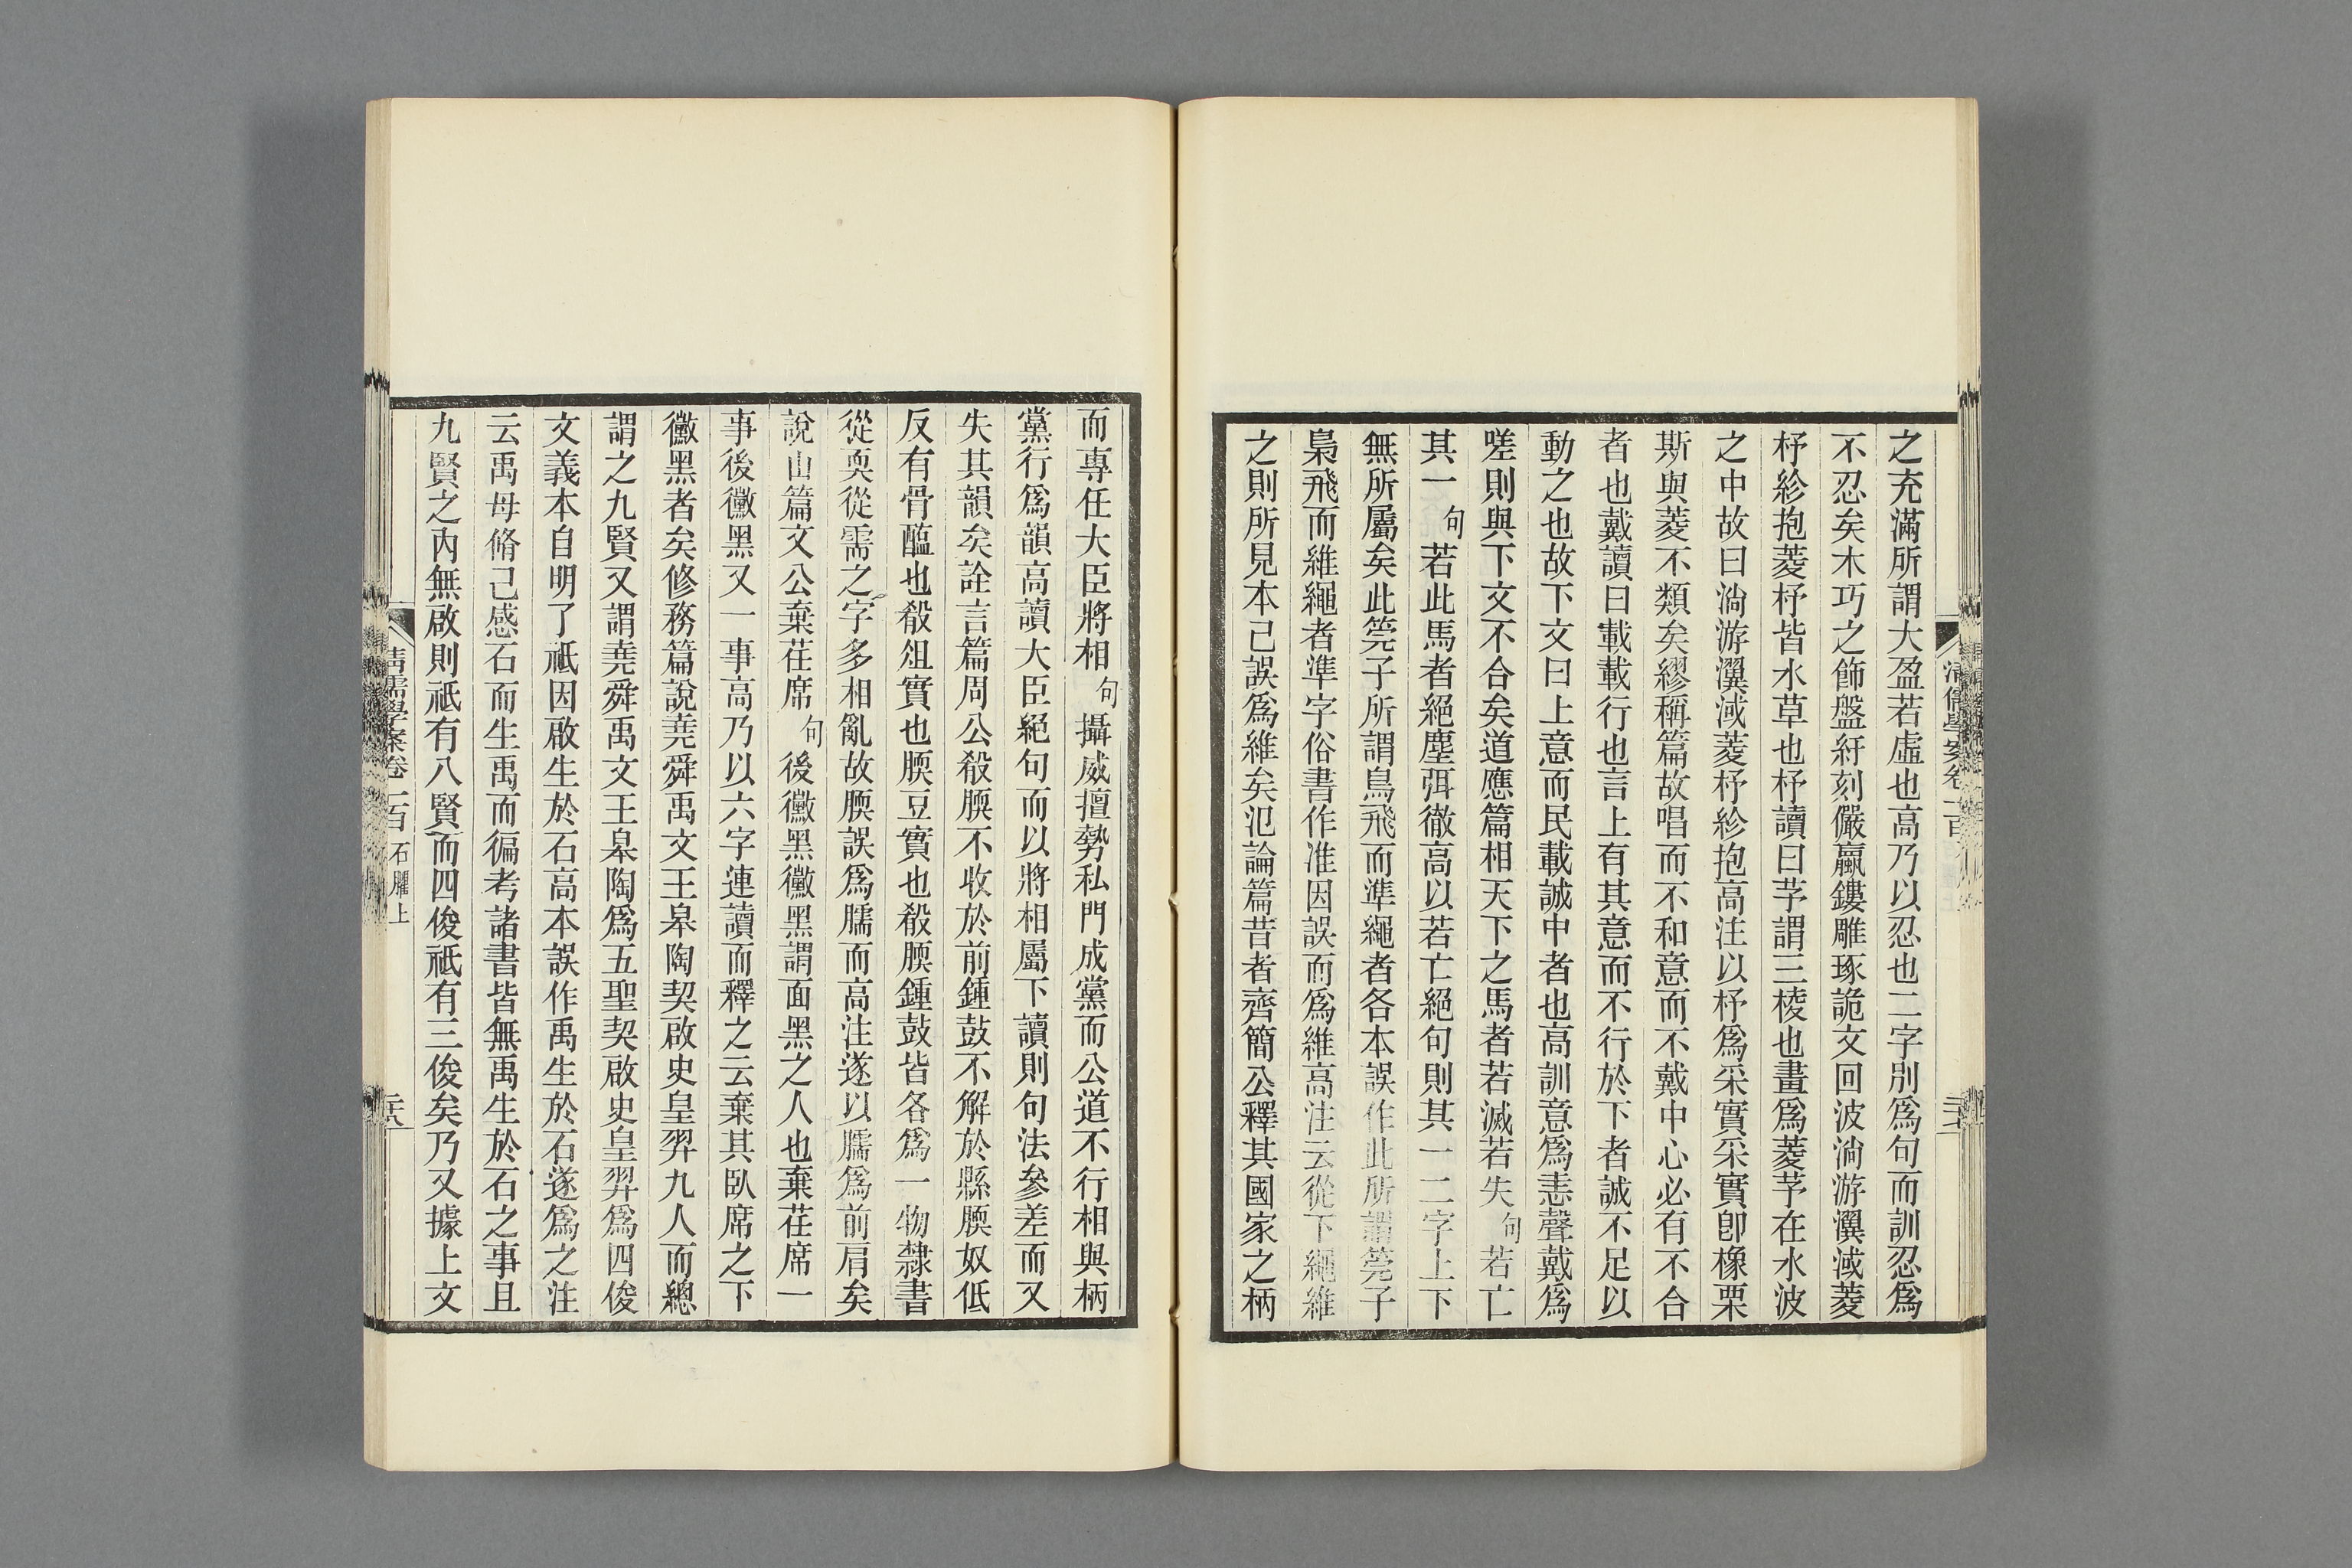 之充滿所謂大盈若虛也高乃以忍也二字別為句而訓忍為
不忍矣木巧之飾盤紆刻儼嬴鏤雕琢詭文回波淌游瀷淢菱
杼紾抱菱杼皆水草也杼讀曰芧謂三棱也畫為菱芧在水波
之中故曰淌游瀷淢菱杼紾抱高注以杼為采實采實卽橡栗
斯與菱不類矣繆稱篇故唱而不和意而不戴中心必有不合
者也戴讀曰載載行也言上有其意而不行於下者誠不足以
動之也故下文曰上意而民載誠中者也高訓意為恚聲戴為
嗟則與下文不合矣道應篇相天下之馬者若滅若失句若亡
其一句若此馬者絕塵弭徹高以若亡絕句則其一二字上下
無所屬矣此筦子所謂鳥飛而準繩者各本誤作此所謂筦子
梟飛而維繩者準字俗書作准因誤而為維高注云從下繩維
之則所見本已誤為維矣氾論篇昔者齊簡公釋其國家之柄
而專任大臣將相句攝威擅勢私門成黨而公道不行相與柄
黨行為韻高讀大臣絕句而以將相屬下讀則句法參差而又
失其韻矣詮言篇周公殽腝不收於前鍾鼓不解於縣腝奴低
反有骨醢也殽俎實也腝豆實也殽腝鍾鼓皆各為一物隸書
從耎從需之字多相亂故腝誤為臑而高注遂以臑為前肩矣
說山篇文公棄荏席句後黴黑黴黑謂面黑之人也棄荏席一
事後黴黑又一事高乃以六字連讀而釋之云棄其臥席之下
黴黑者矣修務篇說堯舜禹文王皋陶契啟史皇羿九人而總
謂之九賢又謂堯舜禹文王皋陶為五聖契啟史皇羿為四俊
文義本自明了祇因啟生於石高本誤作禹生於石遂為之注
云禹母脩己感石而生禹而徧考諸書皆無禹生於石之事且
九賢之內無啟則祇有八賢而四俊祇有三俊矣乃又據上文
清儒學案卷一百 石臞上